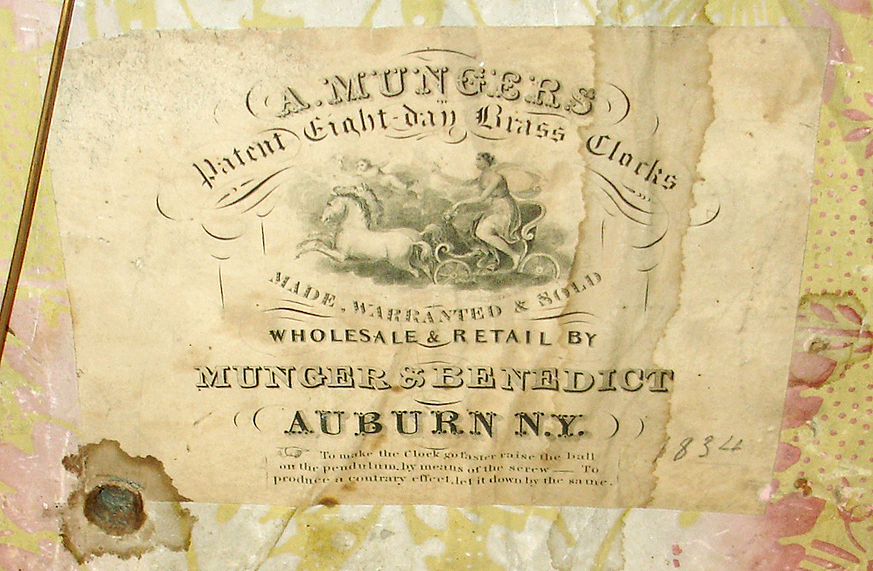 A. MUNGERS
Patent Eight-day Brass Clocks
MADE, WARRANTED & SOLD
WHOLESALE & RETAIL BY
MUNGER & BENEDICT
AUBURN N.Y.
☞ To make the Clock go faster raise the ball
on the pendulum, by means of the screw — To
produce a contrary effect, let it down by the same.
1834